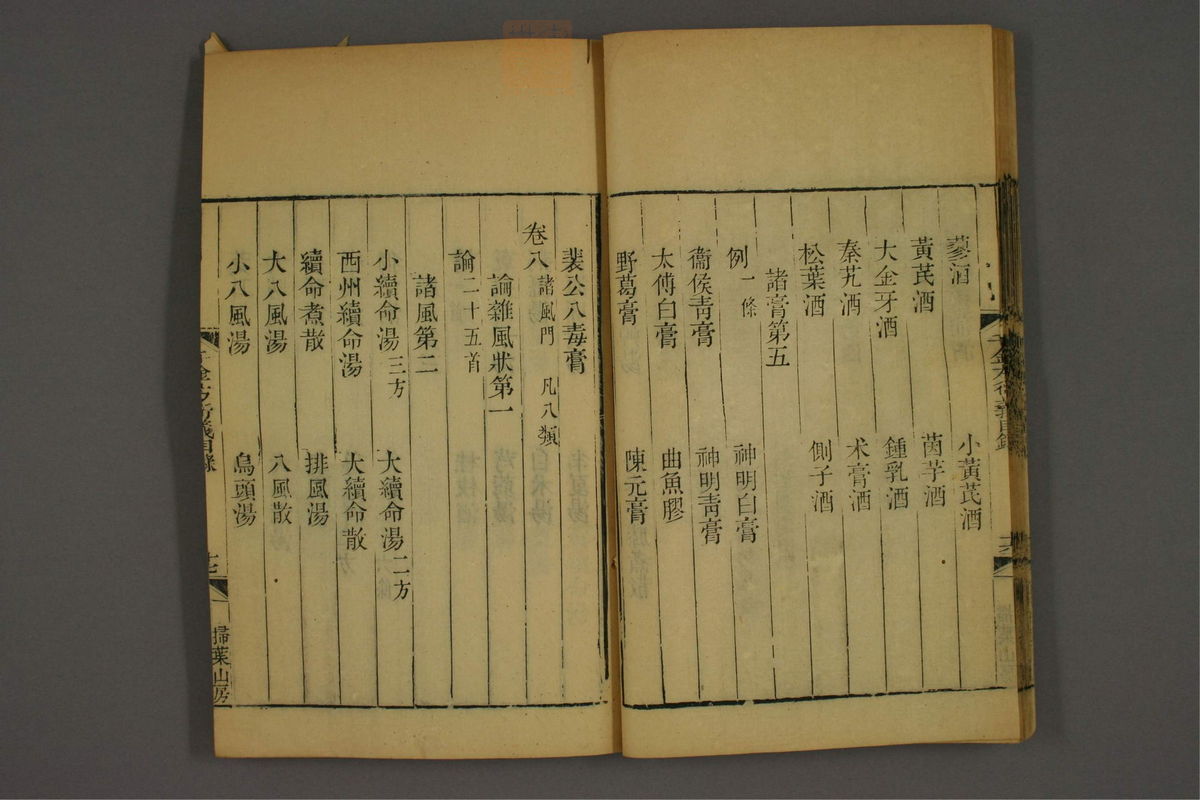 蓼酒
小黃芪酒
黃芪酒
茵芋酒
大金牙酒
鍾乳酒
秦艽酒
术膏酒
松葉酒
側子酒
諸膏第五
例一條
神明白膏
衞侯靑膏
神明靑膏
太傅白膏
曲魚膠
野葛膏
陳元膏
裴公八毒膏
卷八 諸風門 凡八類
論雜風狀第一
論二十五首
諸風第二
小續命湯三方
大續命湯二方
西州續命湯
大續命散
續命煮散
排風湯
大八風湯
八風散
小八風湯
烏頭湯
千金方衍義目錄
掃葉山房